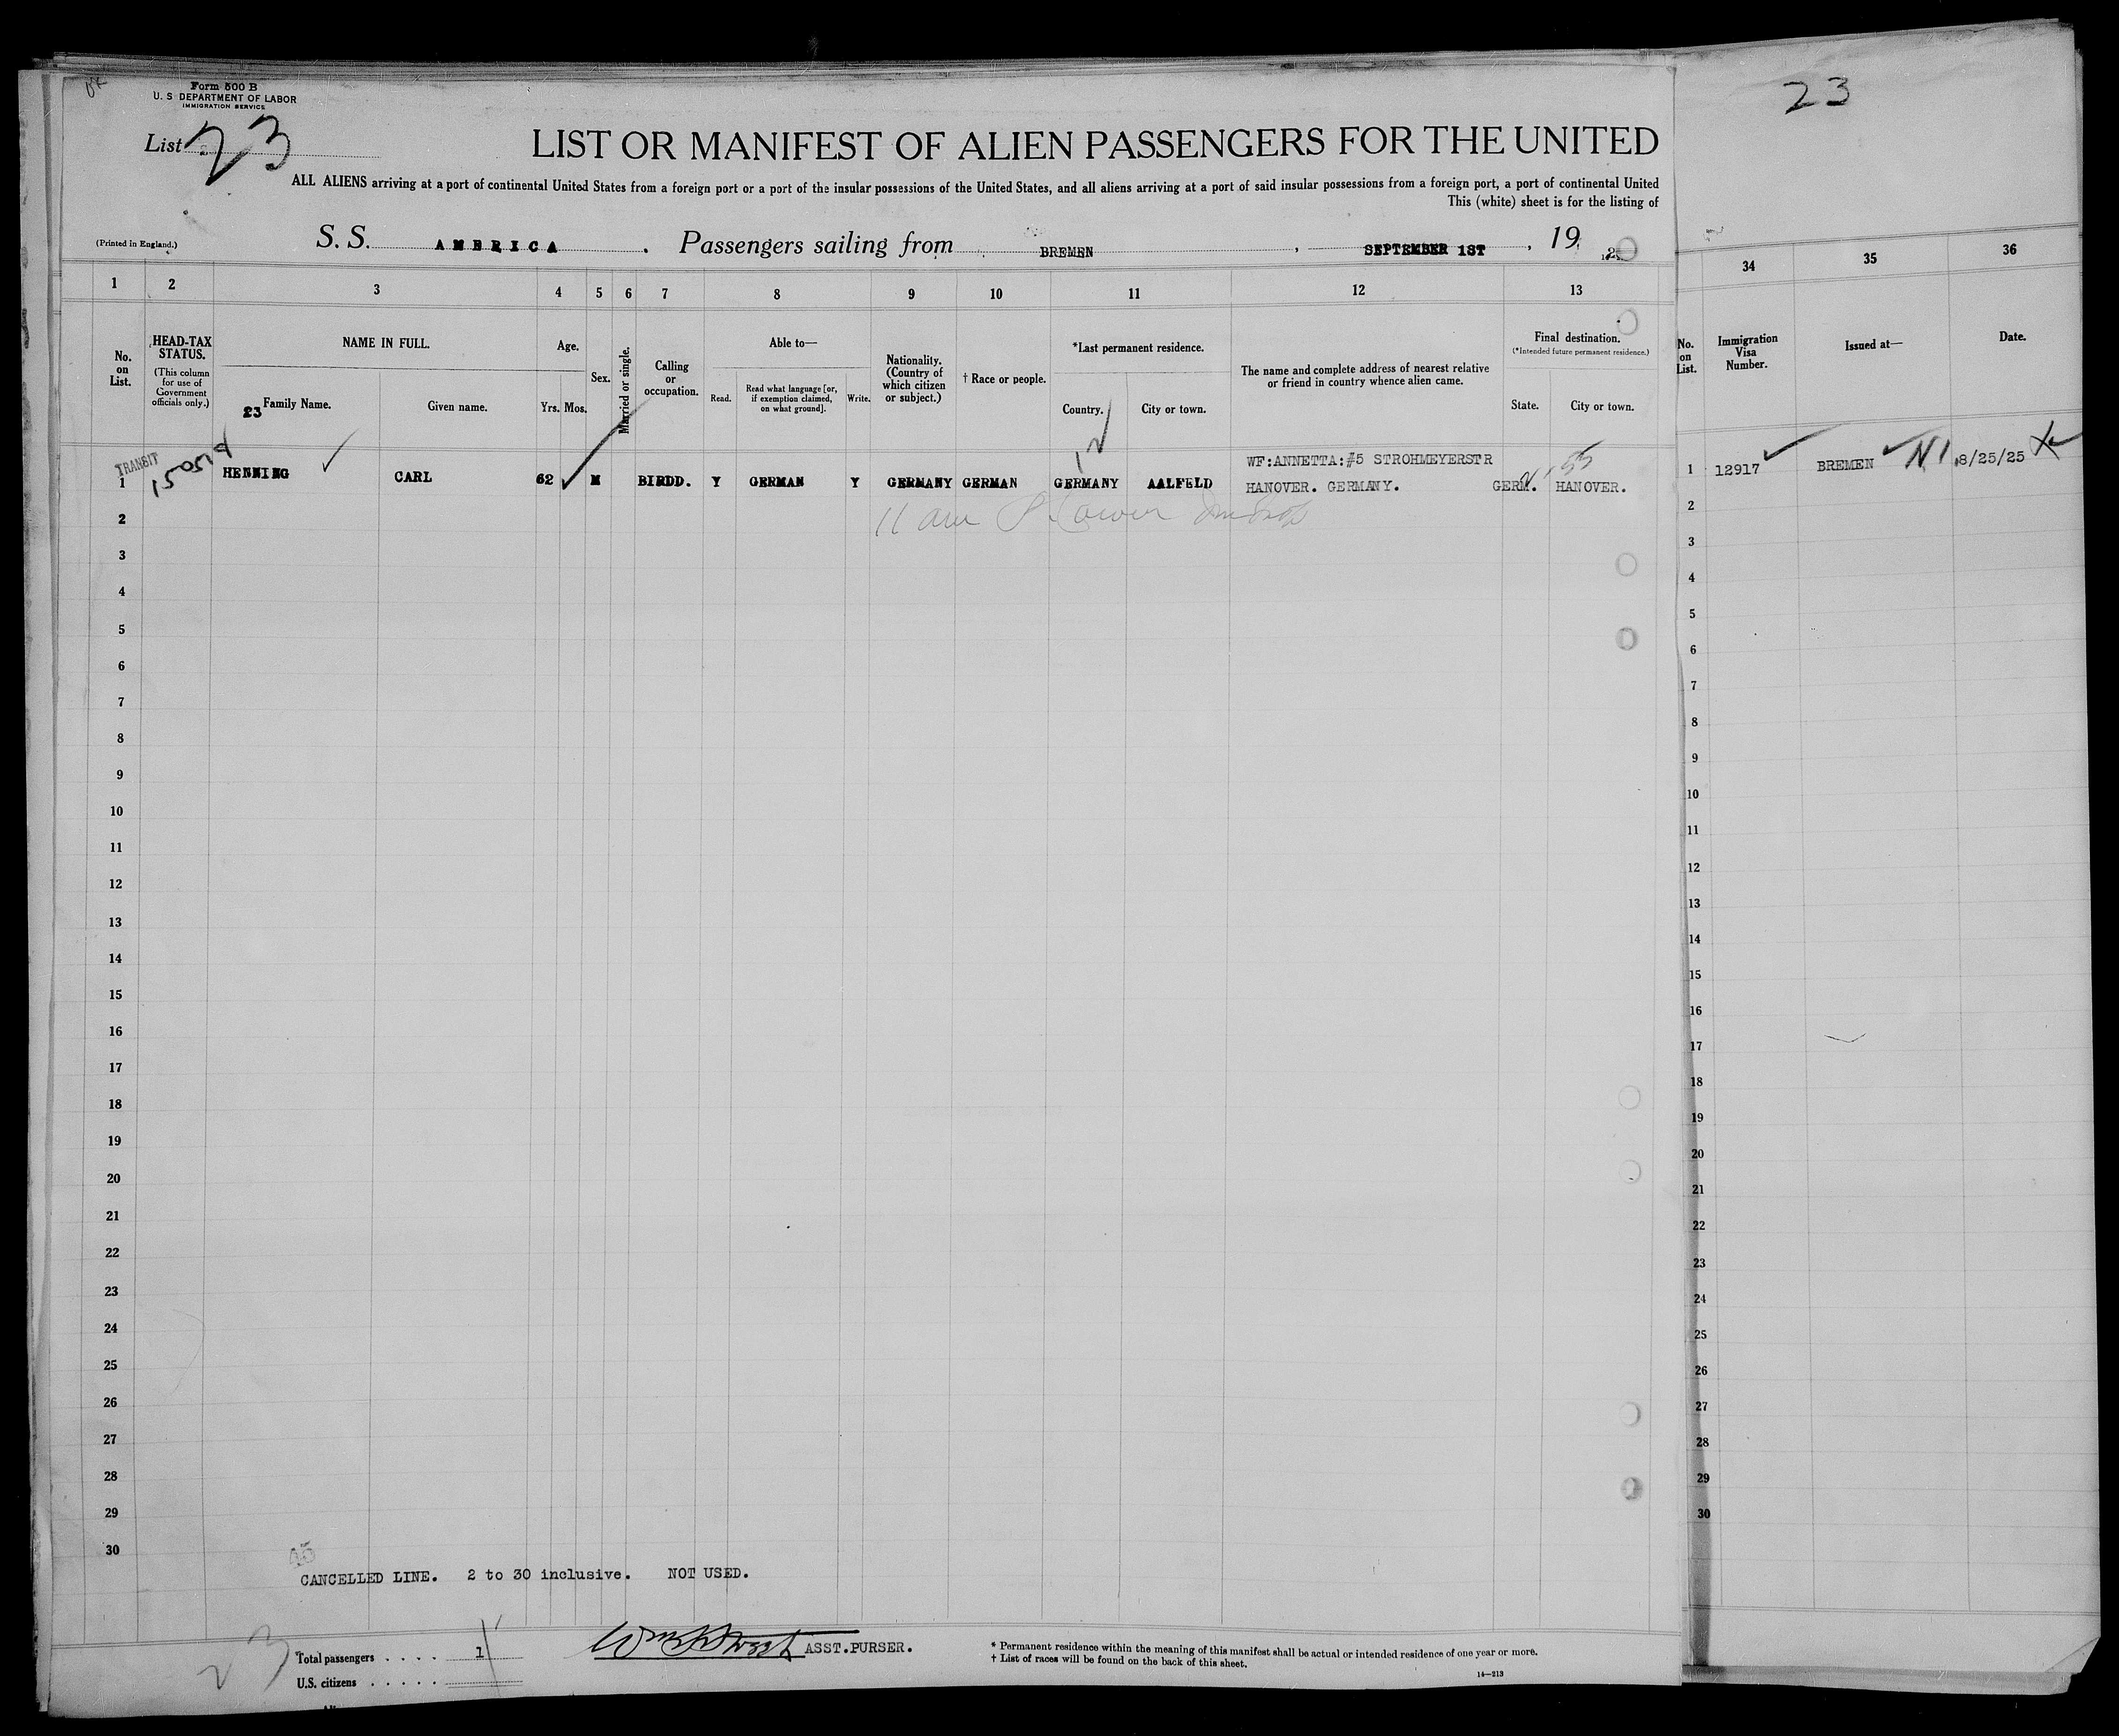 Form 500 B
U. S DEPARTMENT OF LABOR
IMMIGRATION SERVICE
List 23
LIST OR MANIFEST OF ALIEN PASSENGERS FOR THE UNITED
ALL ALIENS arriving at a port of continental United States from a foreign port or a port of the insular possessions of the United States, and all aliens arriving at a port of said insular possessions from a foreign port, a port of continental United
This (white) sheet is for the listing of
(Printed in England.)
S. S. AMERICA. Passengers sailing from BREMEN, SEPTEMBER 1ST, 19
1 2 3 4 5 6 7 8 9 10 11 12 13
No. on List.
HEAD-TAX STATUS.
(This column for use of Government officials only.)
NAME IN FULL.
23 Family Name.
Given name.
Age.
Yrs. Mos.
Sex.
Married or single.
Calling or occupation.
Able to—
Read.
Read what language [or, if exemption claimed, on what ground].
Write.
Nationality. (Country of which citizen or subject.)
† Race or people.
*Last permanent residence.
Country.
City or town.
The name and complete address of nearest relative or friend in country whence alien came.
Final destination.
(*Intended future permanent residence.)
State.
City or town.
TRANSIT
WF:ANNETTA:#5 STROHMEYERSTR
1 HENNING CARL 62 M BIRDD. Y GERMAN Y GERMANY GERMAN GERMANY AALFELD HANOVER. GERMANY. GERM. HANOVER.
2
3
4
5
6
7
8
9
10
11
12
13
14
15
16
17
18
19
20
21
22
23
24
25
26
27
28
29
30
45
CANCELLED LINE. 2 to 30 inclusive. NOT USED.
23
Total passengers . . . . 1
U.S. citizens . . . . .
ASST.PURSER.
* Permanent residence within the meaning of this manifest shall be actual or intended residence of one year or more.
† List of races will be found on the back of this sheet.
14—213
23
34 35 36
No. on List.
Immigration Visa Number.
Issued at—
Date.
1 12917 BREMEN N1 8/25/25
2
3
4
5
6
7
8
9
10
11
12
13
14
15
16
17
18
19
20
21
22
23
24
25
26
27
28
29
30